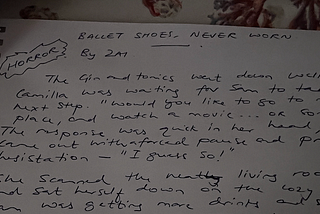 BALLET SHOES, NEVER WORN
HORROR
By ZAI
The Gin and tonics went down well
Camilla was waiting for Sam to ta
next step. "Would you like to go to
place, and watch a movie... or so
The response was quick in her head,
came out with a forced pause and p
hesistation – "I guess so!"
She scanned the neatly living roo
and sat herself down on the cozy
was getting more drinks and s